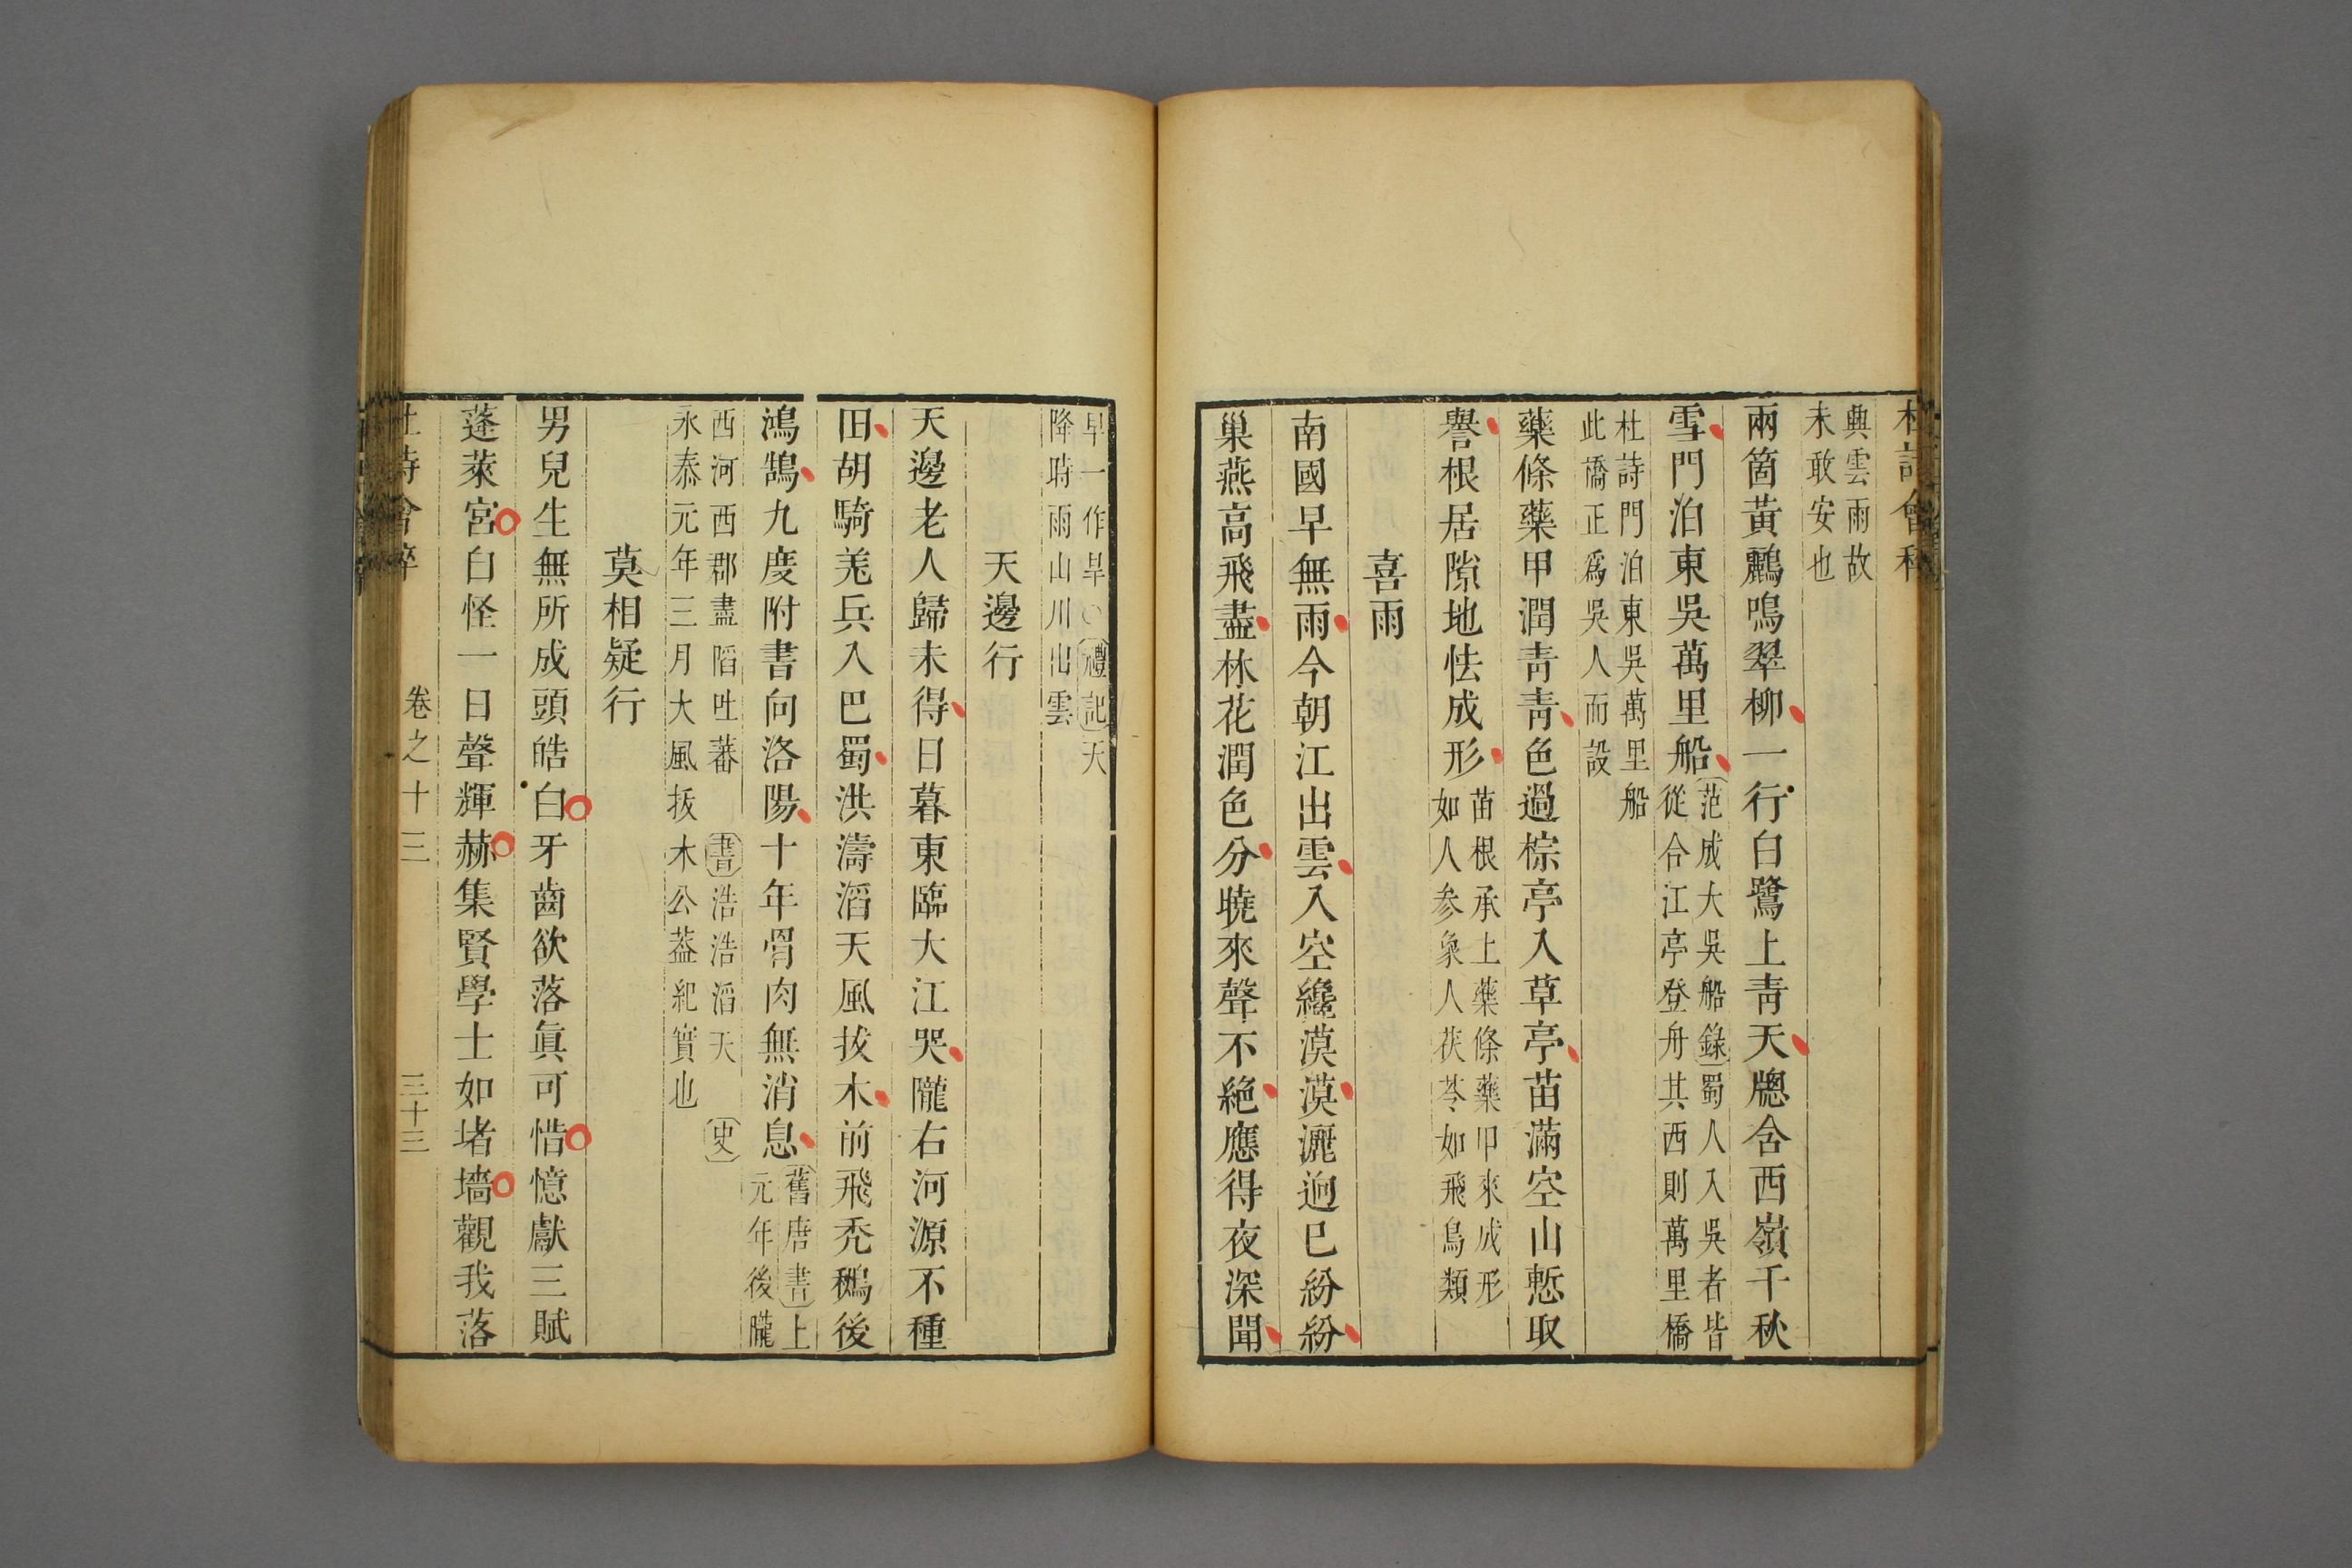 興雲雨故
未敢安也
兩箇黃鸝鳴翠柳一行白鷺上靑天牕含西嶺千秋
雪門泊東吳萬里船
范成大吳船錄蜀人入吳者皆
從合江亭登舟其西則萬里橋
杜詩門泊東吳萬里船
此橋正爲吳人而設
藥條藥甲潤靑靑色過棕亭入草亭苗滿空山慙取
譽根居隙地怯成形
苗根承上藥條藥甲來成形
如人參象人茯苓如飛鳥類
喜雨
南國早無雨今朝江出雲入空纔漠漠灑迥已紛紛
巢燕高飛盡林花潤色分曉來聲不絕應得夜深聞
早一作旱○禮記天
降時雨山川出雲
天邊行
天邊老人歸未得日暮東臨大江哭隴右河源不種
田胡騎羌兵入巴蜀洪濤滔天風拔木前飛禿鶖後
鴻鵠九度附書向洛陽十年骨肉無消息
舊唐書上
元年後隴
西河西郡盡陷吐蕃 書浩浩滔天 史
永泰元年三月大風拔木公蓋紀實也
莫相疑行
男兒生無所成頭皓白牙齒欲落眞可惜憶獻三賦
蓬萊宮自怪一日聲輝赫集賢學士如堵墻觀我落
杜詩會稡 卷之十三 三十三